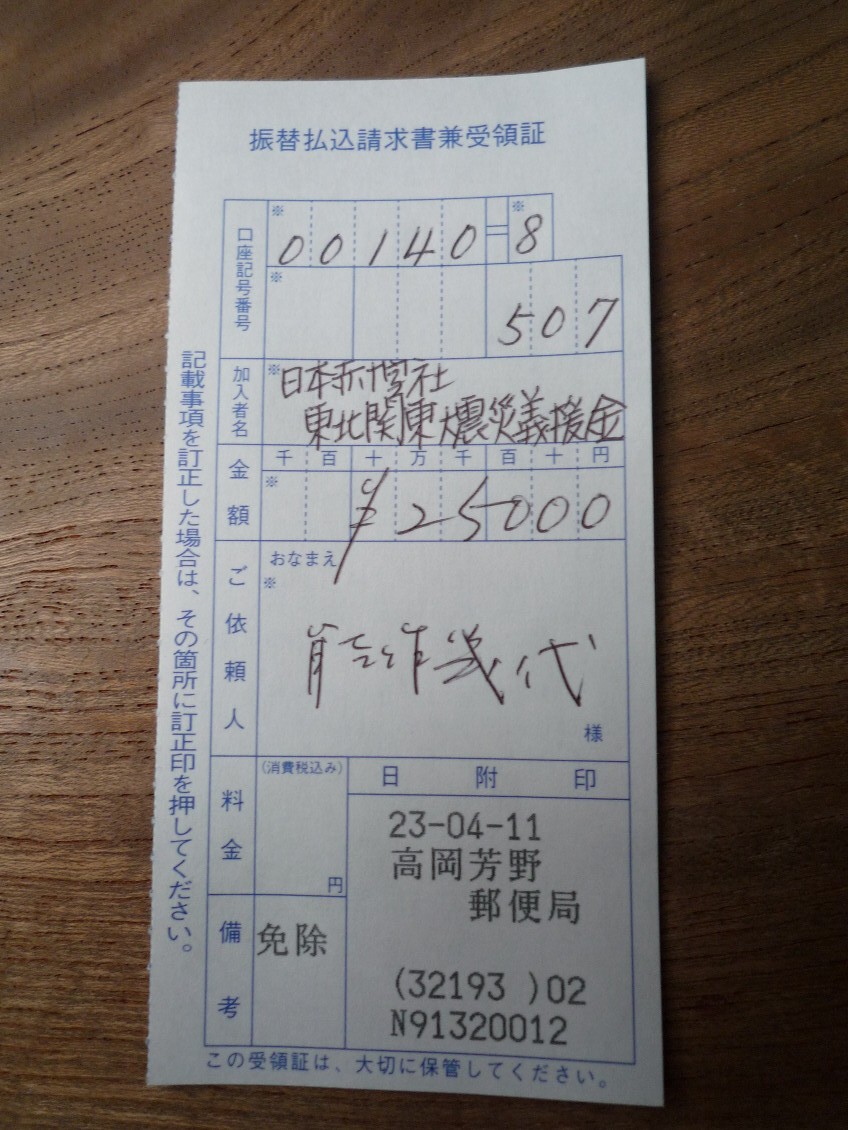 振替払込請求書兼受領証
口座記号番号
※
※
00140-8
※
507
加入者名
※
日本赤十字社
東北関東大震災義援金
金額
千百十万千百十円
※
¥25000
ご依頼人
おなまえ
※
能作幾代
様
料金
(消費税込み)
円
日附印
23-04-11
高岡芳野
郵便局
(32193 )02
N91320012
備考
免除
記載事項を訂正した場合は、その箇所に訂正印を押してください。
この受領証は、大切に保管してください。